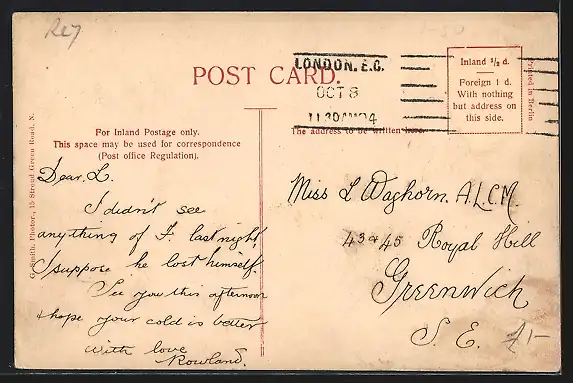 Rly
POST CARD.
LONDON. E.C.
OCT 8
11.30AM 04
Inland ½ d.
Foreign 1 d.
With nothing
but address on
this side.
Printed in Berlin
For Inland Postage only.
This space may be used for correspondence
(Post office Regulation).
The address to be written here.
G. Smith, Photor., 15 Stroud Green Road, N.
Dear L.
I didn't see
anything of F. last night
I suppose he lost himself.
See you this afternoon
& hope your cold is better
with love
Rowland.
Miss L Waghorn. A.L.C.M.
43 & 45 Royal Hill
Greenwich
S. E.
£1-